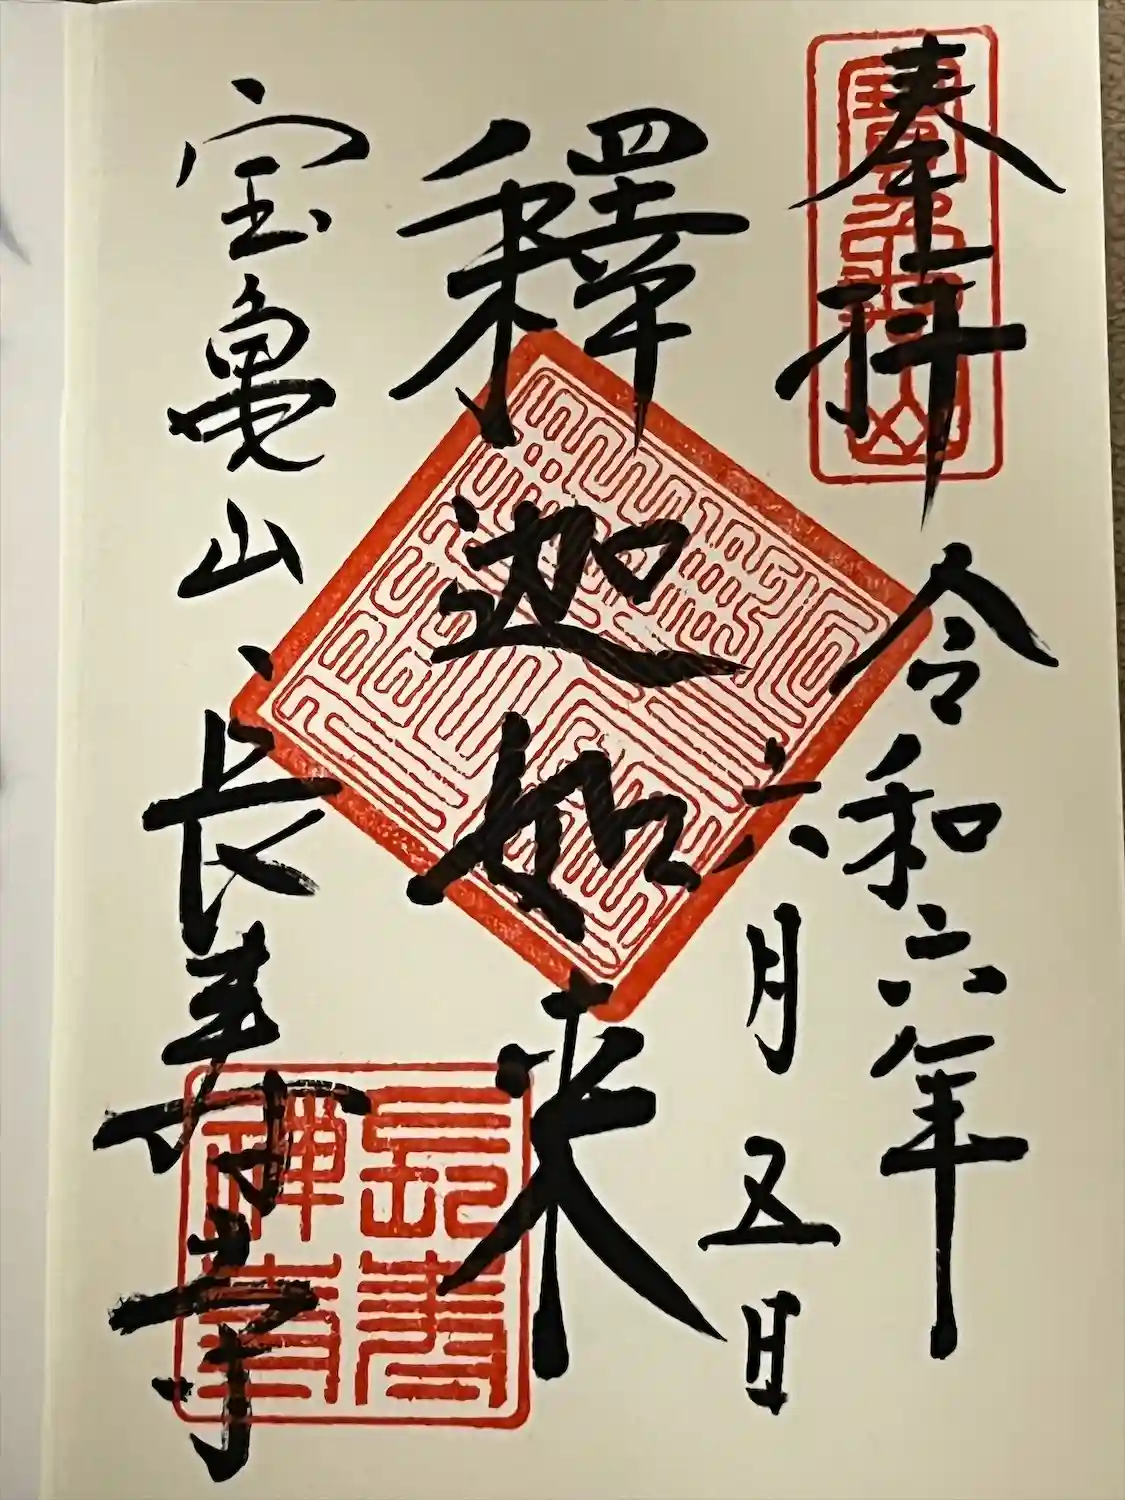 奉拝
令和六年
六月五日
釋迦如来
宝亀山
長寿寺
長寿
禅寺